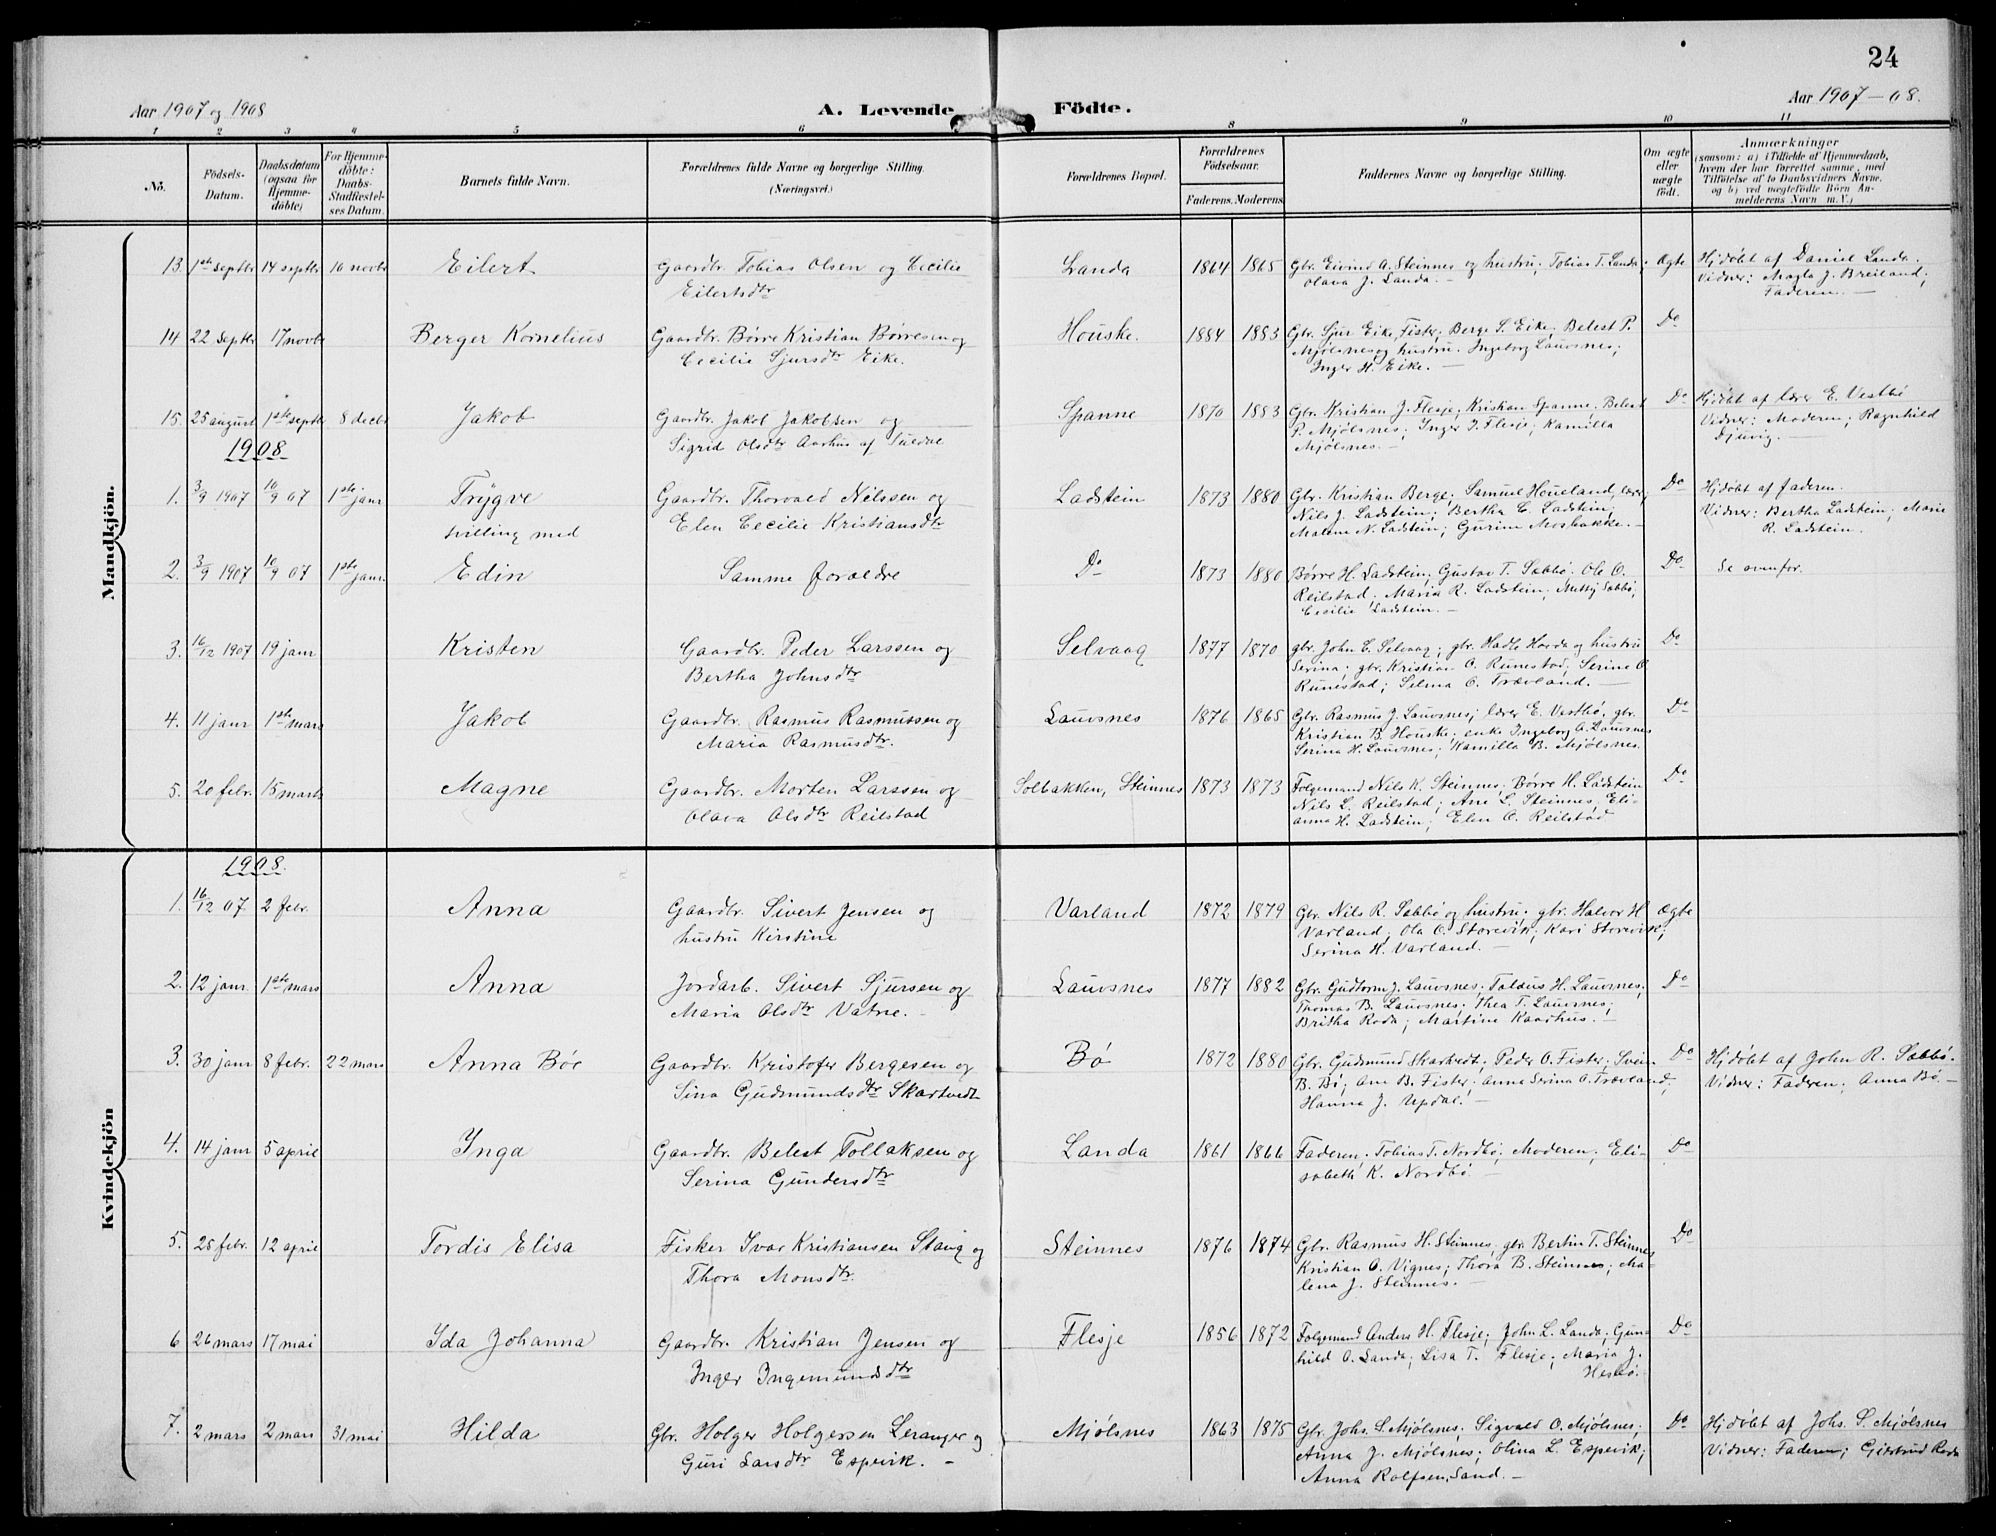 24
Aar 1907 og 1908
A. Levende Födte.
Aar 1907-08.
1 2 3 4 5 6 8 9 10 11
No.
Födsels-Datum.
Daabsdatum (ogsaa for Hjemmedöbte)
For Hjemmedöbte: Daabs-Stadfæstelses Datum.
Barnets fulde Navn.
Forældrenes fulde Navne og borgerlige Stilling.
(Næringsvei.)
Forældrenes Bopæl.
Forældrenes Födselsaar.
Faderens. Moderens.
Faddernes Navne og borgerlige Stilling.
Om ægte eller uægte født.
Anmærkninger
(saasom: a) i Tilfælde af Hjemmedaab, hvem der har forrettet samme, med Tilføielse af to Daabsvidners Navne. og b) ved uægtefödte Börn Anmelderens Navn m. V.)
Mandkjön.
13. 1ste septbr 14 septbr 10 novbr Eilert Gaardbr. Tobias Olsen og Cecilie Landa 1864 1865 Gbr. Eivind A. Steinnes og hustru; Tobias T. Landa; Ægte Hjdøbt af Daniel Landa.
Eilertsdtr Olava J. Landa. — Vidner: Magla J. Breiland;
Faderen. —
14 22 septbr 17 novbr Berger Kornelius Gaardbr. Børre Kristian Børresen og Houske. 1884 1883 Gbr. Sjur Eike, Fister; Berge S. Eike; Belest P. Do
Cecilie Sjursdtr Eike. Mjølsnes og hustru. Ingeborg Lauvsnes;
Inger H. Eike. —
15. 25 august 1ste septbr 8 decbr Jakob Gaardbr. Jakob Jakobsen og Spanne 1870 1883 Gbr. Kristian J. Flesje; Kristian Spanne; Belest Do Hjdøbt af lærer E. Vestbø
Sigrid Olsdtr Aarhus af Suldal P. Mjølsnes; Inger J. Flesje; Kamilla Vidner: Moderen; Ragnhild
Mjølsnes. — Djuvig. —
1908.
1. 3/9 1907 10/9 07 1ste janr Trygve Gaardbr. Thorvald Nilssen og Ladstein 1873 1880 Gbr. Kristian Berge; Samuel Houeland, lærer; Do Hjdøbt af faderen.
tvilling med Elen Cecilie Kristiansdtr Nils J. Ladstein; Bertha C. Ladstein; Vidner: Bertha Ladstein; Marie
Malene N. Ladstein; Gurine Mosbakke. — R. Ladstein.
2. 3/9 1907 10/9 07 1ste janr. Edin Samme forældre Do 1873 1880 Børre H. Ladstein; Gustav T. Sabbø. Ole O. Do Se ovenfor.
Reilstad. Maria R. Ladstein; Metty Sabbø;
Cecilie Ladstein. —
3. 16/12 1907 19 janr Kristen Gaardbr. Peder Larssen og Selvaag 1877 1870 gbr. John E. Selvaag; gbr. Hadle Horda og hustru Do
Bertha Johnsdtr Serina; gbr. Kristian O. Runestad; Serine O
Runestad; Selma O. Trævland. —
4. 11 janr 1ste mars Jakob Gaardbr. Rasmus Rasmussen og Lauvsnes 1876 1865 Gbr. Rasmus J. Lauvsnes; lærer E. Vestbø. gbr. Do
Maria Rasmusdtr. Kristian B. Houske; enke Ingeborg A. Lauvsnes
Serina H. Lauvsnes; Kamilla B. Mjølsnes.
5. 20 febr. 15 marts Magne Gaardbr. Morten Larssen og Solbakken, Steinnes 1873 1873 Folgemand Nils K. Steinnes; Børre H. Ladstein Do
Olava Olsdtr Reilstad Nils L. Reilstad; Ane L. Steinnes, Eli-
anna H. Ladstein; Elen O. Reilstad
Kvindekjön
1908.
1. 16/12 07. 2 febr. Anna Gaardbr. Sivert Jensen og Varland 1872 1879 Gbr. Nils R. Sabbø og hustru; gbr. Halvor H Ægte
hustru Kirstine Varland; Ola O. Storevik; Kari Storevik;
Serina H. Varland. —
2. 12 janr. 1ste mars Anna Jordarb. Sivert Sjursen og Lauvsnes 1877 1882 Gbr. Gudtorm J. Lauvsnes. Taldus H. Lauvsnes; Do
Maria Olsdtr Vatne. — Thomas B. Lauvsnes; Thea T. Lauvsnes;
Britha Roda; Martine Kaarhus. —
3. 30 janr 8 febr. 22 mars Anna Bøe Gaardbr. Kristofer Bergesen og Bø 1872 1880 Gbr. Gudmund Skartvedt; Peder O. Fister; Svein Do Hjdøbt af John R. Sabbø.
Sina Gudmundsdtr Skartvedt B. Bø; Ane B. Fister; Anna Serina O. Trævland; Vidner: Faderen; Anna Bø. —
Hanna J. Updal. —
4. 14 janr 5 april Inga Gaardbr. Belest Tollaksen og Landa 1861 1866 Faderen; Tobias T. Nordbø; Moderen; Eli- Do
Serina Gundersdtr sabeth K. Nordbø
5. 25 febr. 12 april Tordis Elisa Fisker Ivar Kristiansen Stang og Steinnes 1876 1874 Gbr. Rasmus H. Steinnes; gbr Bertin T. Steinnes Do
Thora Monsdtr. Kristian O. Vignes; Thora B. Steinnes; Ma-
lena J. Steinnes. —
6 26 mars 17 mai Ida Johanna Gaardbr. Kristian Jensen og Flesje 1856 1872 Folgemand Anders H. Flesje; John L. Landa; Gun- Do
Inger Ingemundsdtr hild O. Landa; Lisa T. Flesje; Maria J.
Hesbø.
7. 2 mars 2 mars 31 mai Hilda Gbr. Holger Holgersen Leranger og Mjølsnes 1863 1875 Gbr. Johs. S. Mjølsnes; Sigvald O. Mjølsnes; Do Hjdøbt af Johs. S. Mjølsnes
Guri Larsdtr Espevik. — Anna J. Mjølsnes; Olina L. Espevik; Vidner: Faderen; Gjertrud Roda
Anna Rolfsen, Sand. —